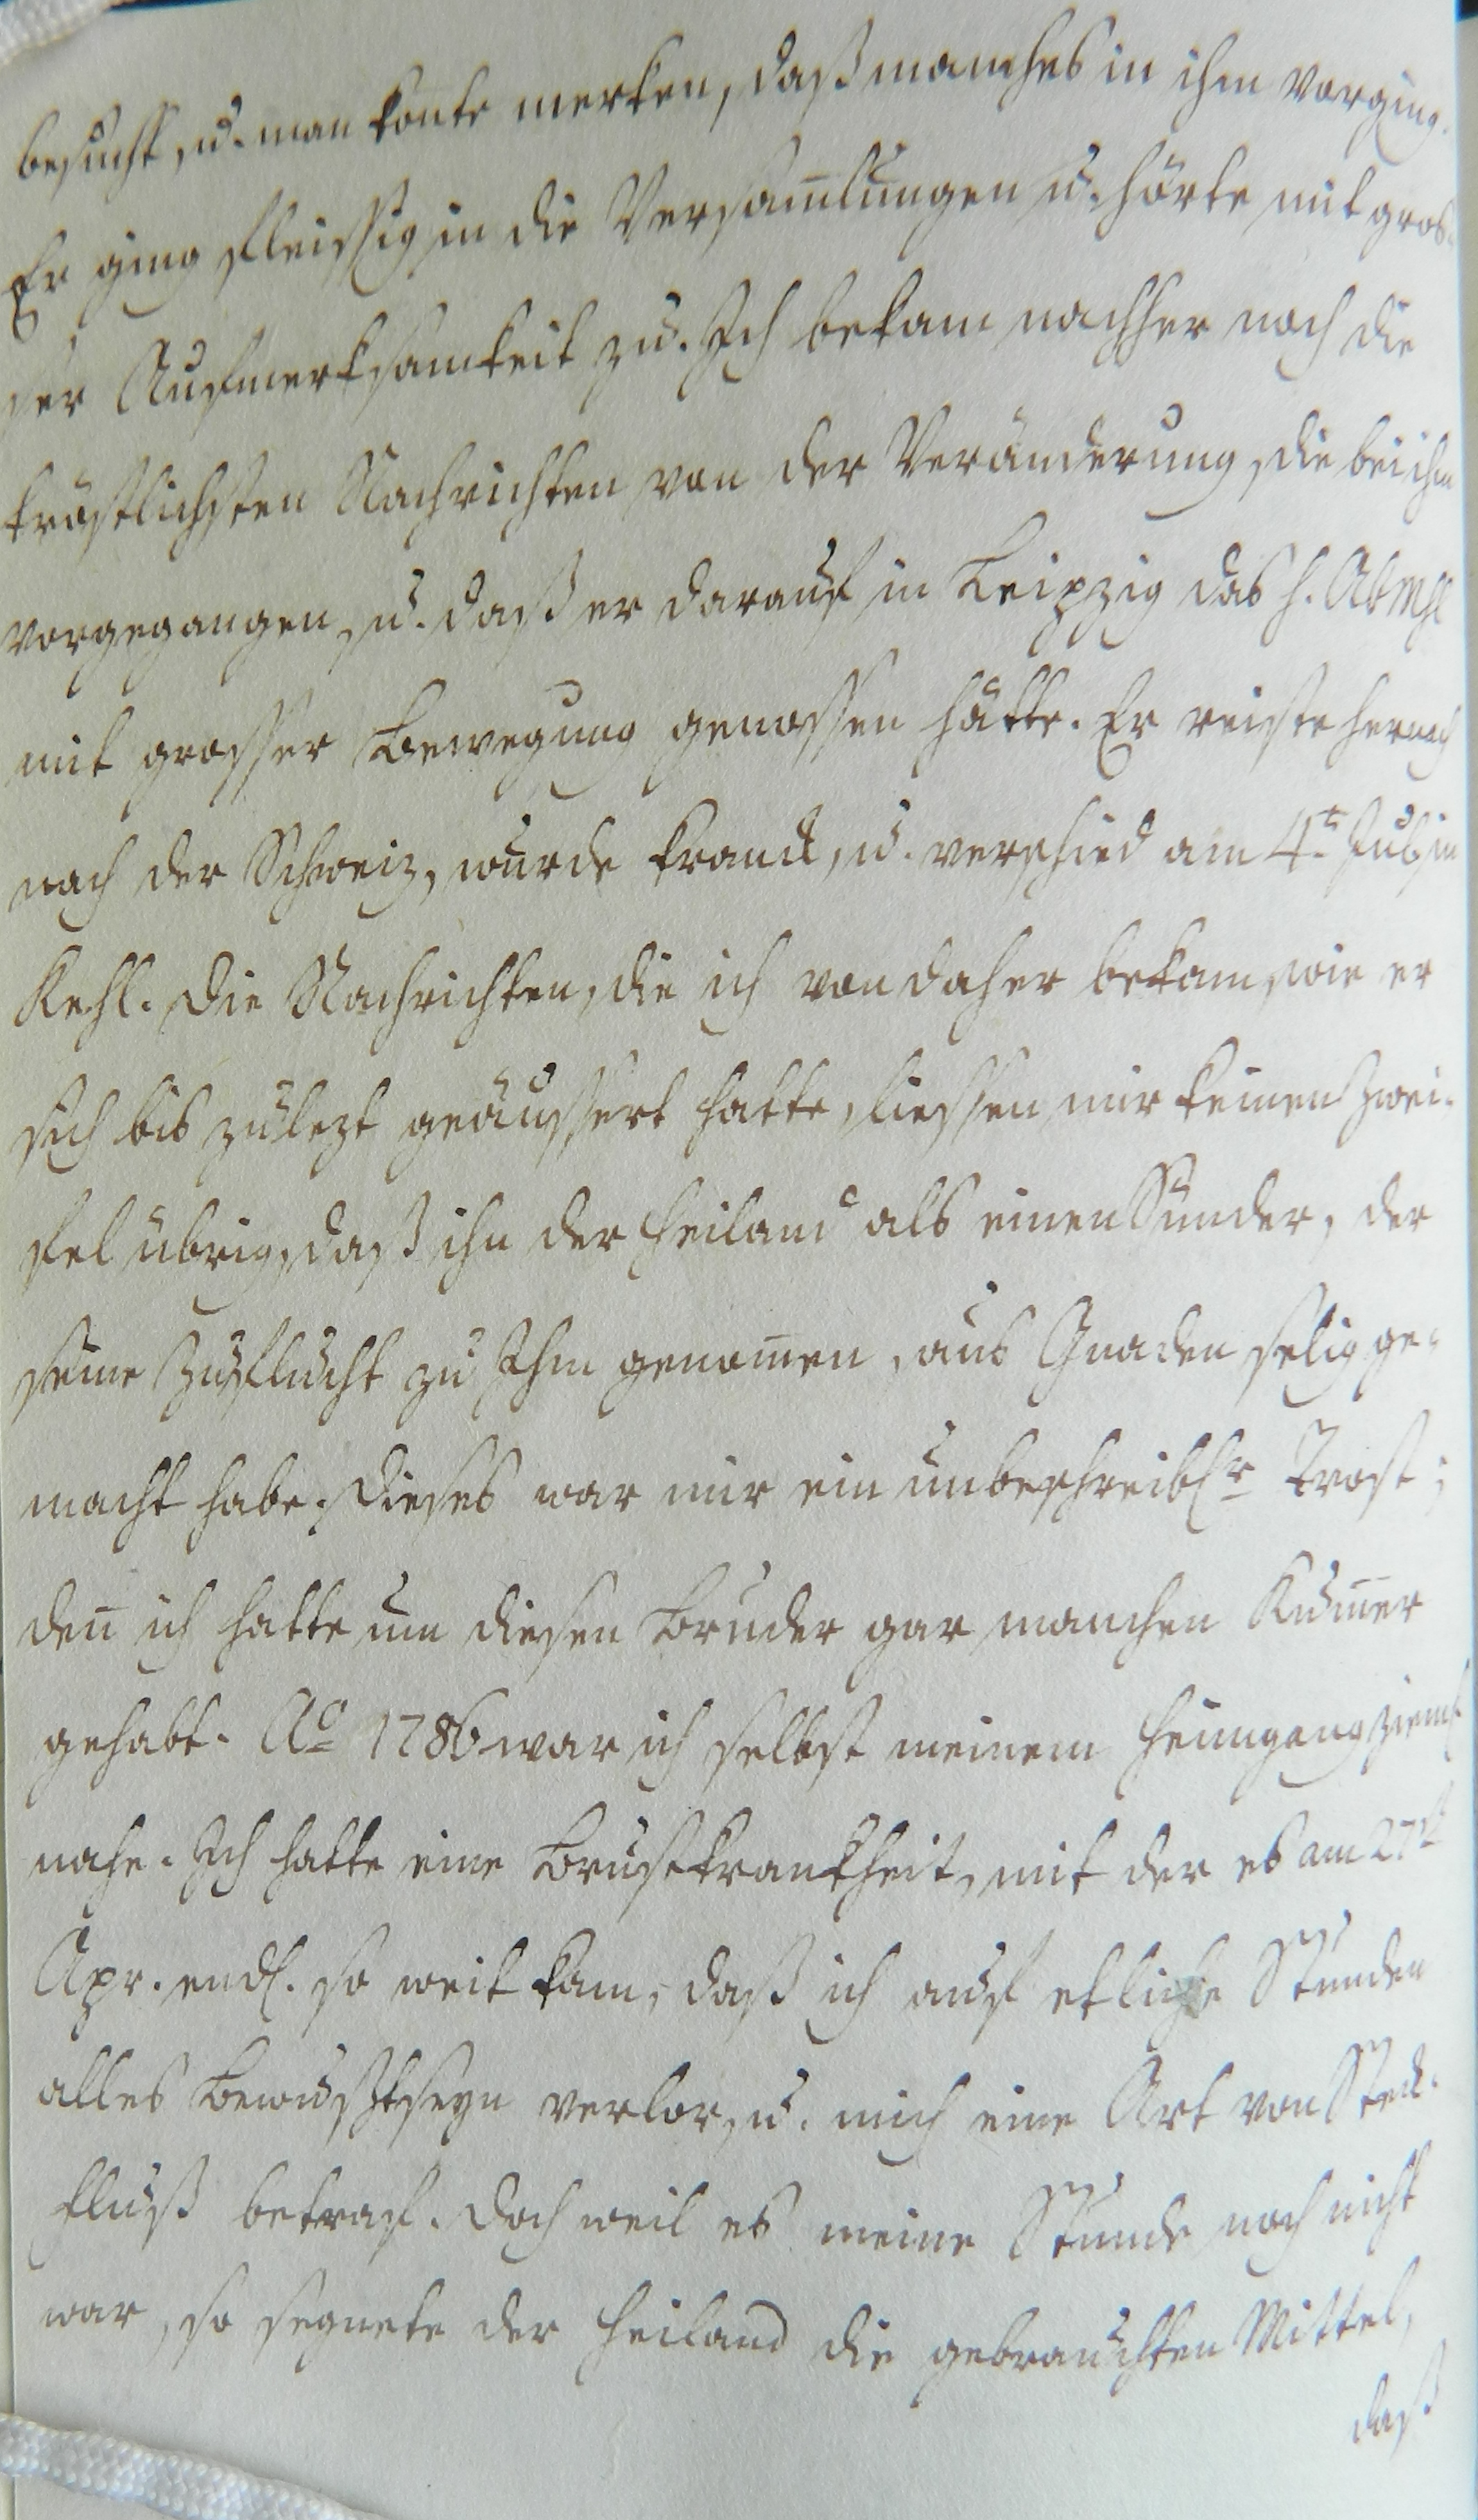 besucht, u. man konte merken, daß manches in ihm vorging.
Er ging fleissig in die Versam̅lungen u. hörte mit gros-
ser Aufmerksamkeit zu. Ich bekam nachher noch die
tröstlichsten Nachrichten von der Veränderung, die bei ihm
vorgegangen, u. daß er darauf in Leipzig das h. AbMhl
mit grosser Bewegung genossen hätte. Er reiste hernach
nach der Schweiz, wurde kranck, u. verschied am 4t. in
Kehl. Die Nachrichten, die ich von daher bekam, wie er
sich bis zulezt geäussert hatte, liessen mir keinen Zwei-
fel übrig, daß ihn der Heiland als einen Sünder, der
seine Zuflucht zu Ihm genom̅en, aus Gnaden selig ge-
macht habe. Dieses war mir ein unbeschreibl.r Trost;
den̅ ich hatte um diesen Bruder gar manchen Kum̅er
gehabt. Ao 1786 war ich selbst meinem Heimgang zieml.
nahe. Ich hatte eine Brustkrankheit, mit der es am 27t
Apr. endl. so weit kam, daß ich auf etliche Stunden
alles Bewusstseyn verlor, u. mich eine Art von Steck-
fluß betraf. Doch weil es meine Stunde noch nicht
war, so segnete der Heiland die gebrauchten Mittel,
daß